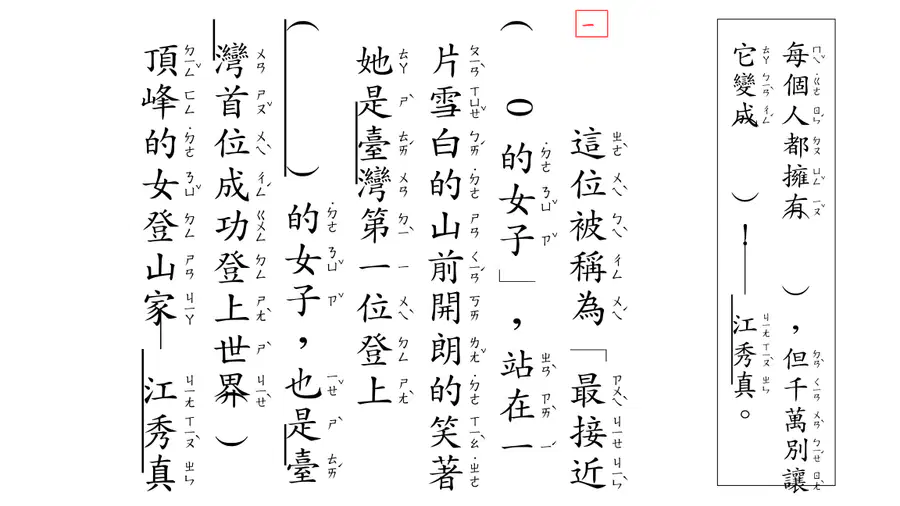 每個人都擁有　　），但千萬別讓
它變成　　）！——江秀真。
一
這位被稱為「最接近
（0的女子」，站在一
片雪白的山前開朗的笑著
她是臺灣第一位登上
（　　　）的女子，也是臺
灣首位成功登上世界）
頂峰的女登山家—江秀真